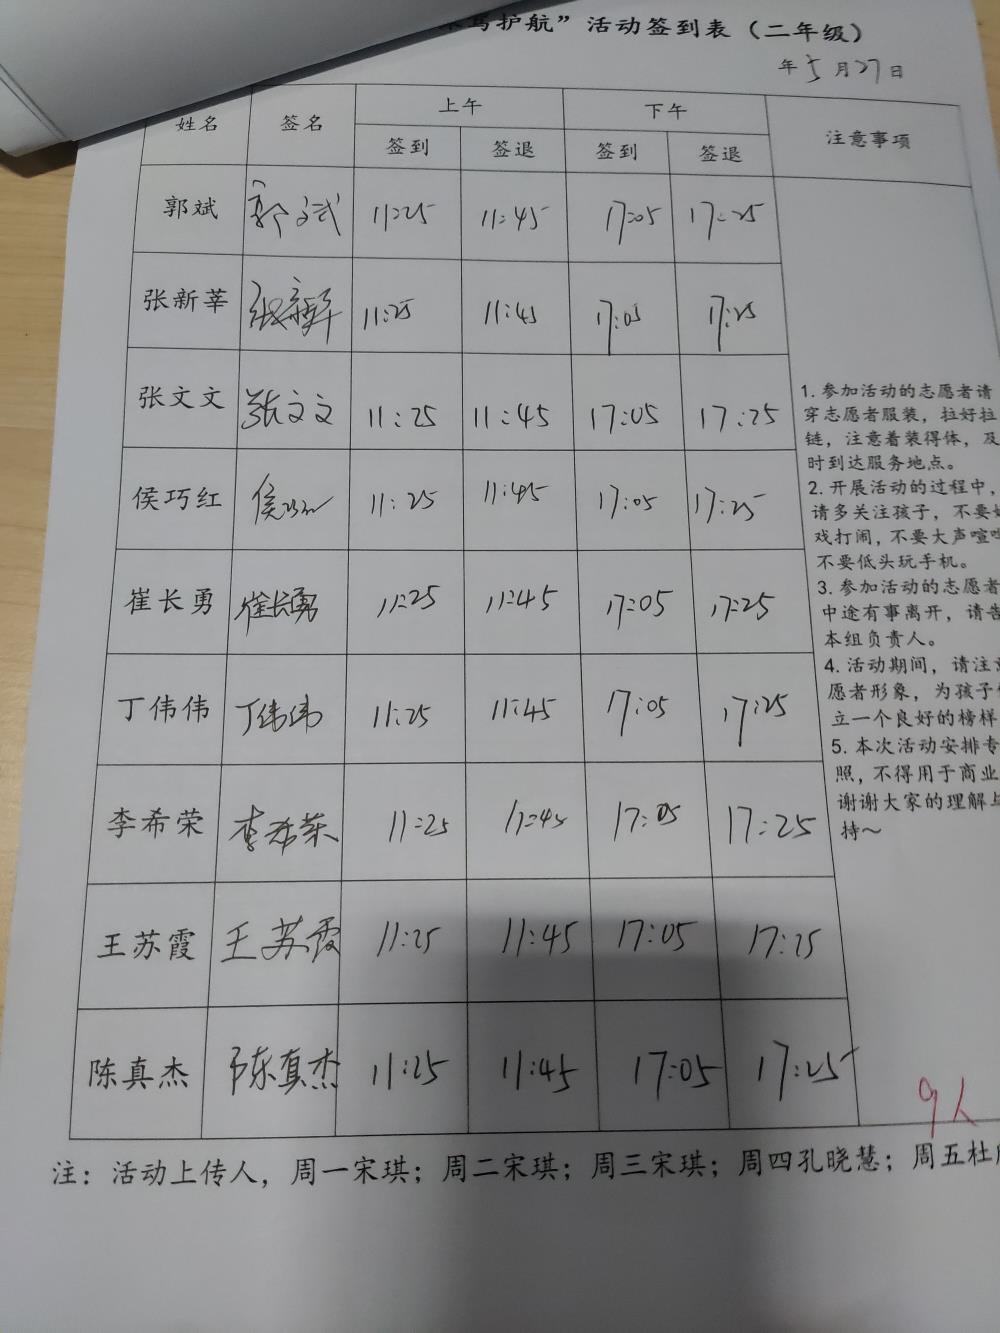 驾护航”活动签到表（二年级）
年5月27日
姓名 签名 上午 下午 注意事项
签到 签退 签到 签退
郭斌 郭文斌 11:25 11:45 17:05 17:25
张新莘 张新莘 11:25 11:45 17:05 17:25
张文文 张文文 11:25 11:45 17:05 17:25
侯巧红 侯巧红 11:25 11:45 17:05 17:25
崔长勇 崔长勇 11:25 11:45 17:05 17:25
丁伟伟 丁伟伟 11:25 11:45 17:05 17:25
李希荣 李希荣 11:25 11:45 17:05 17:25
王苏霞 王苏霞 11:25 11:45 17:05 17:25
陈真杰 陈真杰 11:25 11:45 17:05 17:25
1. 参加活动的志愿者请
穿志愿者服装，拉好拉
链，注意着装得体，及
时到达服务地点。
2. 开展活动的过程中，
请多关注孩子，不要
戏打闹，不要大声喧
不要低头玩手机。
3. 参加活动的志愿者
中途有事离开，请告
本组负责人。
4. 活动期间，请注意
愿者形象，为孩子
立一个良好的榜样
5. 本次活动安排专
照，不得用于商业
谢谢大家的理解与
持～
9人
注：活动上传人，周一宋琪；周二宋琪；周三宋琪；周四孔晓慧；周五杜